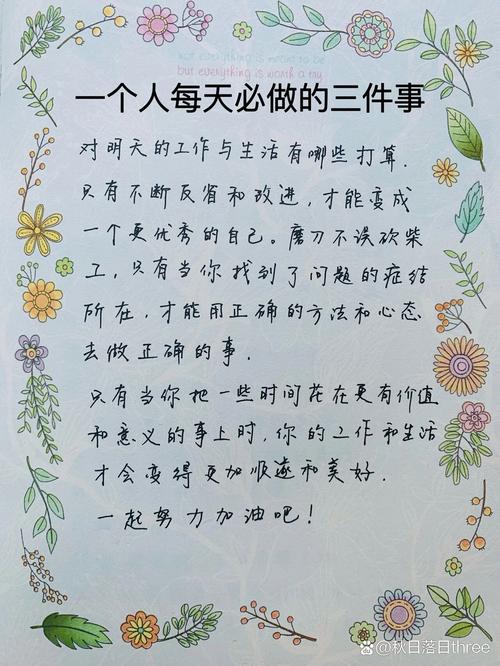 not everything is meant to be
but everything is worth a try
一个人每天必做的三件事
对明天的工作与生活有哪些打算.
只有不断反省和改进，才能变成
一个更优秀的自己。磨刀不误砍柴
工，只有当你找到了问题的症结
所在，才能用正确的方法和心态
去做正确的事.
只有当你把一些时间花在更有价值
和意义的事上时，你的工作和生活
才会变得更加顺遂和美好.
一起努力加油吧！
@秋日落日three